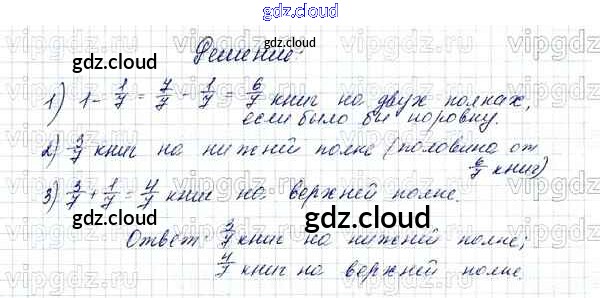 gdz.cloud
Решение:
1) 1 - 1/7 = 7/7 - 1/7 = 6/7 книг на двух полках,
если было бы поровну.
2) 3/7 книг на нижней полке (половина от
6/7 книг)
3) 3/7 + 1/7 = 4/7 книг на верхней полке.
Ответ: 3/7 книг на нижней полке;
4/7 книг на верхней полке.
gdz.cloud
gdz.cloud
gdz.cloud
gdz.cloud
gdz.cloud
vipgdz